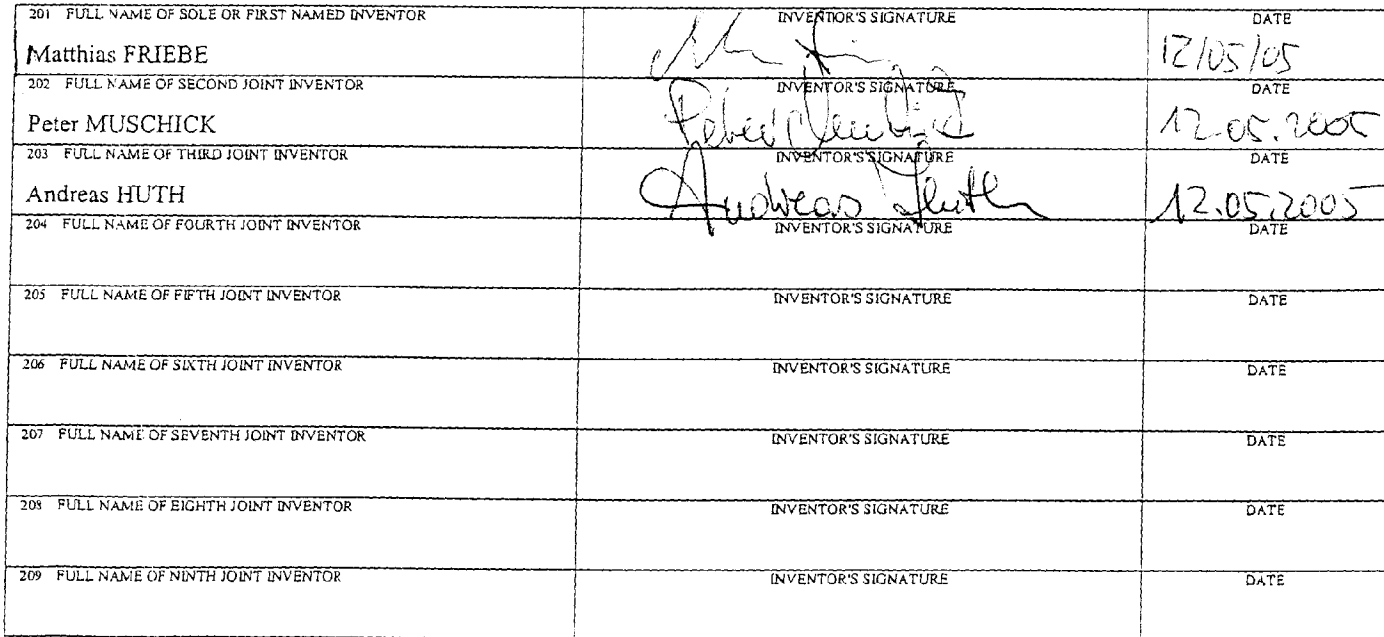 201 FULL NAME OF SOLE OR FIRST NAMED INVENTOR INVENTIOR'S SIGNATURE DATE
Matthias FRIEBE 12/05/05
202 FULL NAME OF SECOND JOINT INVENTOR INVENTOR'S SIGNATURE DATE
Peter MUSCHICK Peter Muschick 12.05.2005
203 FULL NAME OF THIRD JOINT INVENTOR INVENTOR'S SIGNATURE DATE
Andreas HUTH Andreas Huth 12.05.2005
204 FULL NAME OF FOURTH JOINT INVENTOR INVENTOR'S SIGNATURE DATE
205 FULL NAME OF FIFTH JOINT INVENTOR INVENTOR'S SIGNATURE DATE
206 FULL NAME OF SIXTH JOINT INVENTOR INVENTOR'S SIGNATURE DATE
207 FULL NAME OF SEVENTH JOINT INVENTOR INVENTOR'S SIGNATURE DATE
208 FULL NAME OF EIGHTH JOINT INVENTOR INVENTOR'S SIGNATURE DATE
209 FULL NAME OF NINTH JOINT INVENTOR INVENTOR'S SIGNATURE DATE